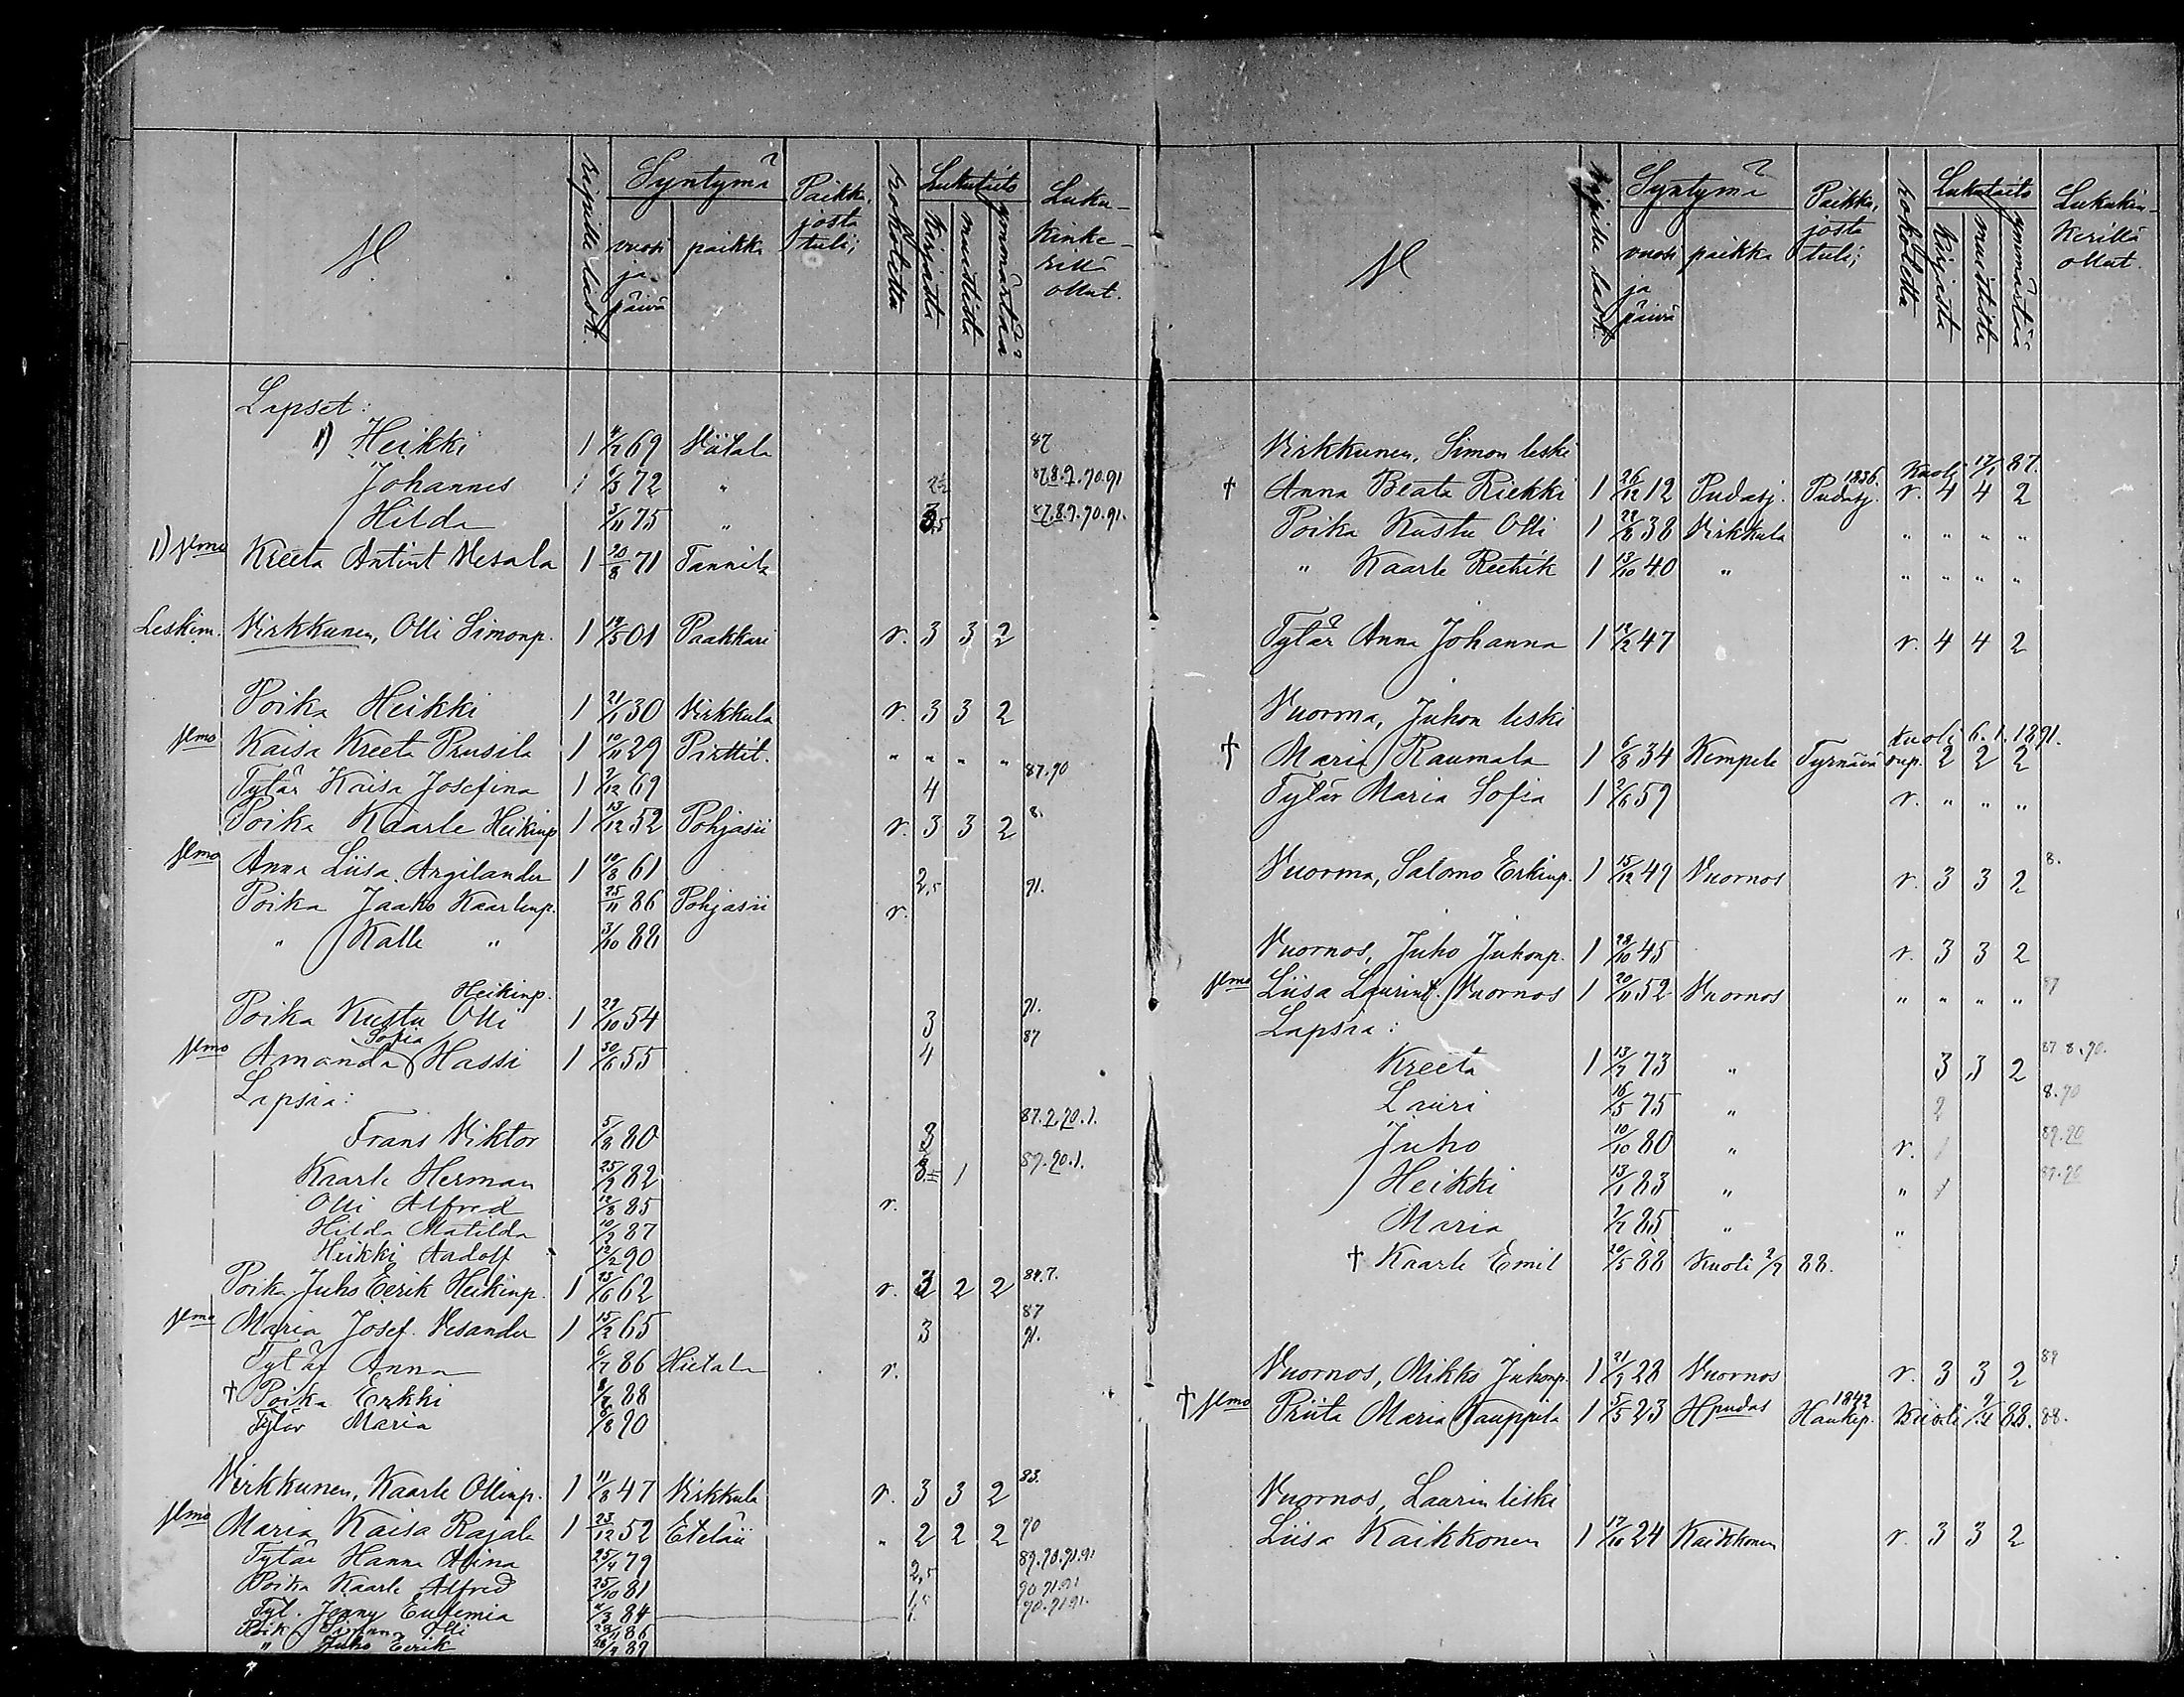 N.
Ripille lask.
Syntymä
vuosi ja päivä
paikka
Paikka, josta tuli;
Rokotettu
Lukutaito
kirjasta
muistista
ymmärtää
Luku-
kinke-
rillä
ollut.
Lapset:
1) Heikki 1 4/7 69 Viitala 87
Johannes 1 6/5 72 " 87.8.9.90.91
Hilda 3/11 75 " 87.8.9.90.91.
1) vmo Kreeta Antint Vesala 1 20/8 71 Tannila
Leskim. Virkkunen, Olli Simonp. 1 19/5 01 Paakkari r. 3 3 2
Poika Heikki 1 21/1 30 Virkkula r. 3 3 2
vmo Kaisa Kreeta Prusila 1 10/11 29 Pirttit. " " " "
Tytär Kaisa Josefina 1 9/12 69 4 87.90
Poika Kaarle Heikinp 1 13/12 52 Pohjasii r. 3 3 2 8.
vmo Anna Liisa Argilander 1 10/8 61 2,5 91.
Poika Jaako Kaarlenp. 25/11 86 Pohjasii r.
" Kalle " 3/10 88
Poika Kustu Olli Heikinp. 1 29/10 54 3 91.
vmo Amanda Sofia Hassi 1 30/6 55 4 87
Lapsia:
Frans Viktor 5/8 80 3 87.9.90.1.
Kaarle Herman 25/9 82 3 1 89.90.1.
Olli Alfred 12/8 85 r.
Hilda Matilda 10/2 87
Heikki Aadolf 12/2 90
Poika Juho Eerik Heikinp. 1 23/6 62 r. 3 2 2 84.7.
vmo Maria Josef. Vesander 1 15/2 65 3 87 91.
Tytär Anna 6/7 86 Hietala r.
† Poika Erkki 8/7 88
Tytär Maria 6/8 90
Virkkunen, Kaarle Ollinp. 1 11/8 47 Virkkula r. 3 3 2 83.
vmo Maria Kaisa Rajala 1 23/12 52 Eteläii " 2 2 2 90
Tytär Hanna Alina 25/4 79 2,5 89.90.91.91
Poika Kaarle Alfred 25/10 81 1,5 90.91.91
Tyt. Jenny Eufemia 4/3 84 1. 90.91.91.
Poik. Olli 86
" Juho Eerik 89
N.
Ripille lask.
Syntymä
vuosi ja päivä
paikka
Paikka, josta tuli;
Rokotettu
Lukutaito
kirjasta
muistista
ymmärtää
Lukukin-
kerillä
ollut.
Virkkunen, Simon leski
† Anna Beata Riekki 1 26/12 12 Pudasj. Pudasj. 1836. Kuoli 17/1 87. r. 4 4 2
Poika Kustu Olli 1 29/8 38 Virkkula " " " "
" Kaarle Reetrik 1 13/10 40 " " " " "
Tytär Anna Johanna 1 12/2 47 r. 4 4 2
Vuorma, Juhon leski
† Maria Raumala 1 6/8 34 Kempele Tyrnävä Kuoli 6.1.1891. rup. 2 2 2
Tytär Maria Sofia 1 2/6 59 r. " " "
Vuorma, Salomo Erkinp. 1 15/12 49 Vuornos r. 3 3 2 8.
Vuornos, Juho Juhonp. 1 28/10 45 r. 3 3 2
vmo Liisa Laurint. Vuornos 1 20/11 52 Vuornos " " " " 87
Lapsia:
Kreeta 1 13/7 73 " 3 3 2 87 8.90.
Lauri 16/5 75 " 2 8.90
Juho 10/10 80 " r. 1 89.90
Heikki 13/1 83 " " 1 89.90
Maria 2/7 85 " "
† Kaarle Emil 20/5 88 Kuoli 2/7 88.
Vuornos, Mikko Juhonp. 1 21/9 28 Vuornos r. 3 3 2 89
† vmo Priita Maria Tauppila 1 5/5 23 Hpudas Haukip. 1842 Kuoli 9/4 88. 88.
Vuornos, Laurin leski
Liisa Kaikkonen 1 17/10 24 Kaikkonen r. 3 3 2